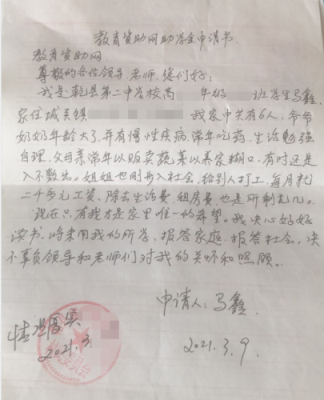 教育资助网助学金申请书
教育资助网
尊敬的各位领导老师,您们好:
我是乾县第二中学校高 年级 班学生马鑫
家住城关镇 我家中共有6人,爷爷
奶奶年龄大了,并有慢性疾病,常年吃药,生活勉强
自理,父母亲常年以贩卖蔬菜以养家糊口,有时还是
入不敷出。姐姐也刚步入社会,给别人打工,每月就
二千多元工资,除去生活费租房费也是所剩无几。
现在只有我才是家里唯一的希望。我决心好好
读书,将来用我的所学,报答家庭,报答社会,决
不辜负领导和老师们对我的关怀和照顾。
申请人:马鑫
情况属实
2021.3.
2021.3.9.